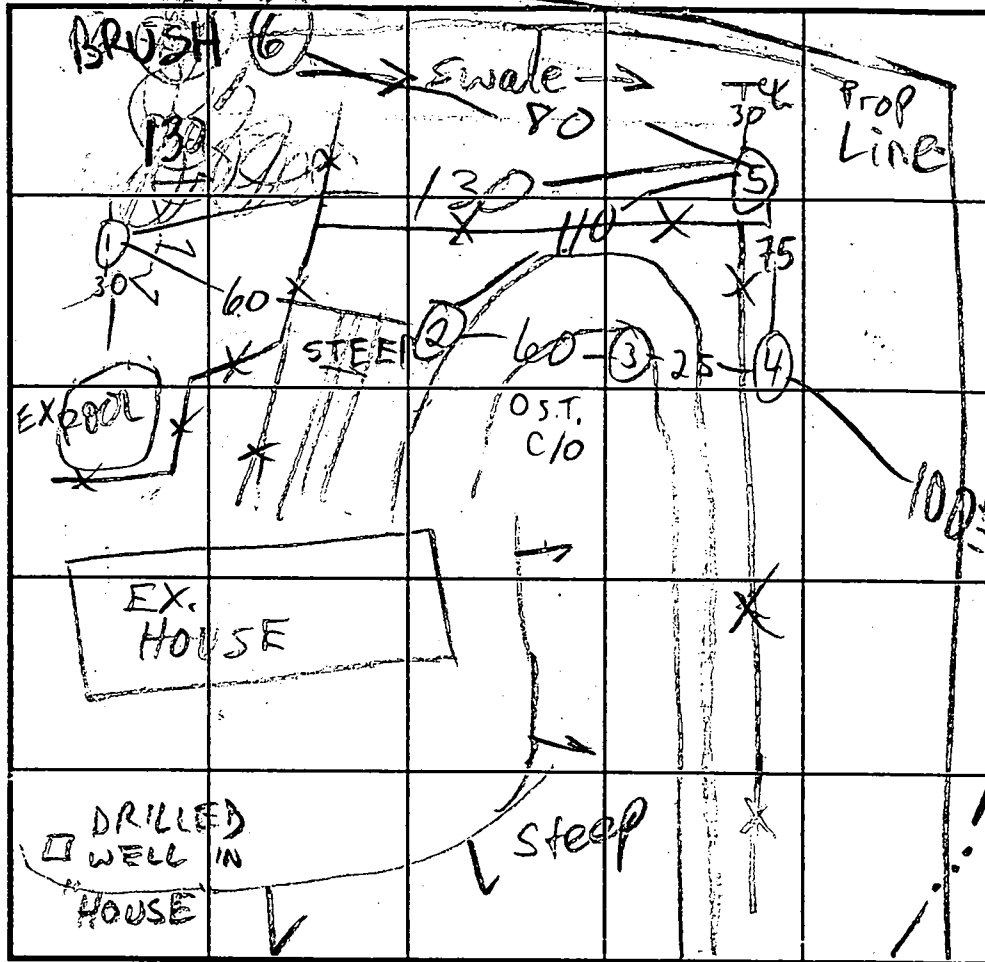 BRUSH
6
Swale →
80
30
Prop
Line
130
5
130
1
30
110
75
60
2
STEEP
60
3
25
4
EX POOL
O S.T.
C/O
100±
EX.
HOUSE
DRILLED
WELL IN
HOUSE
steep